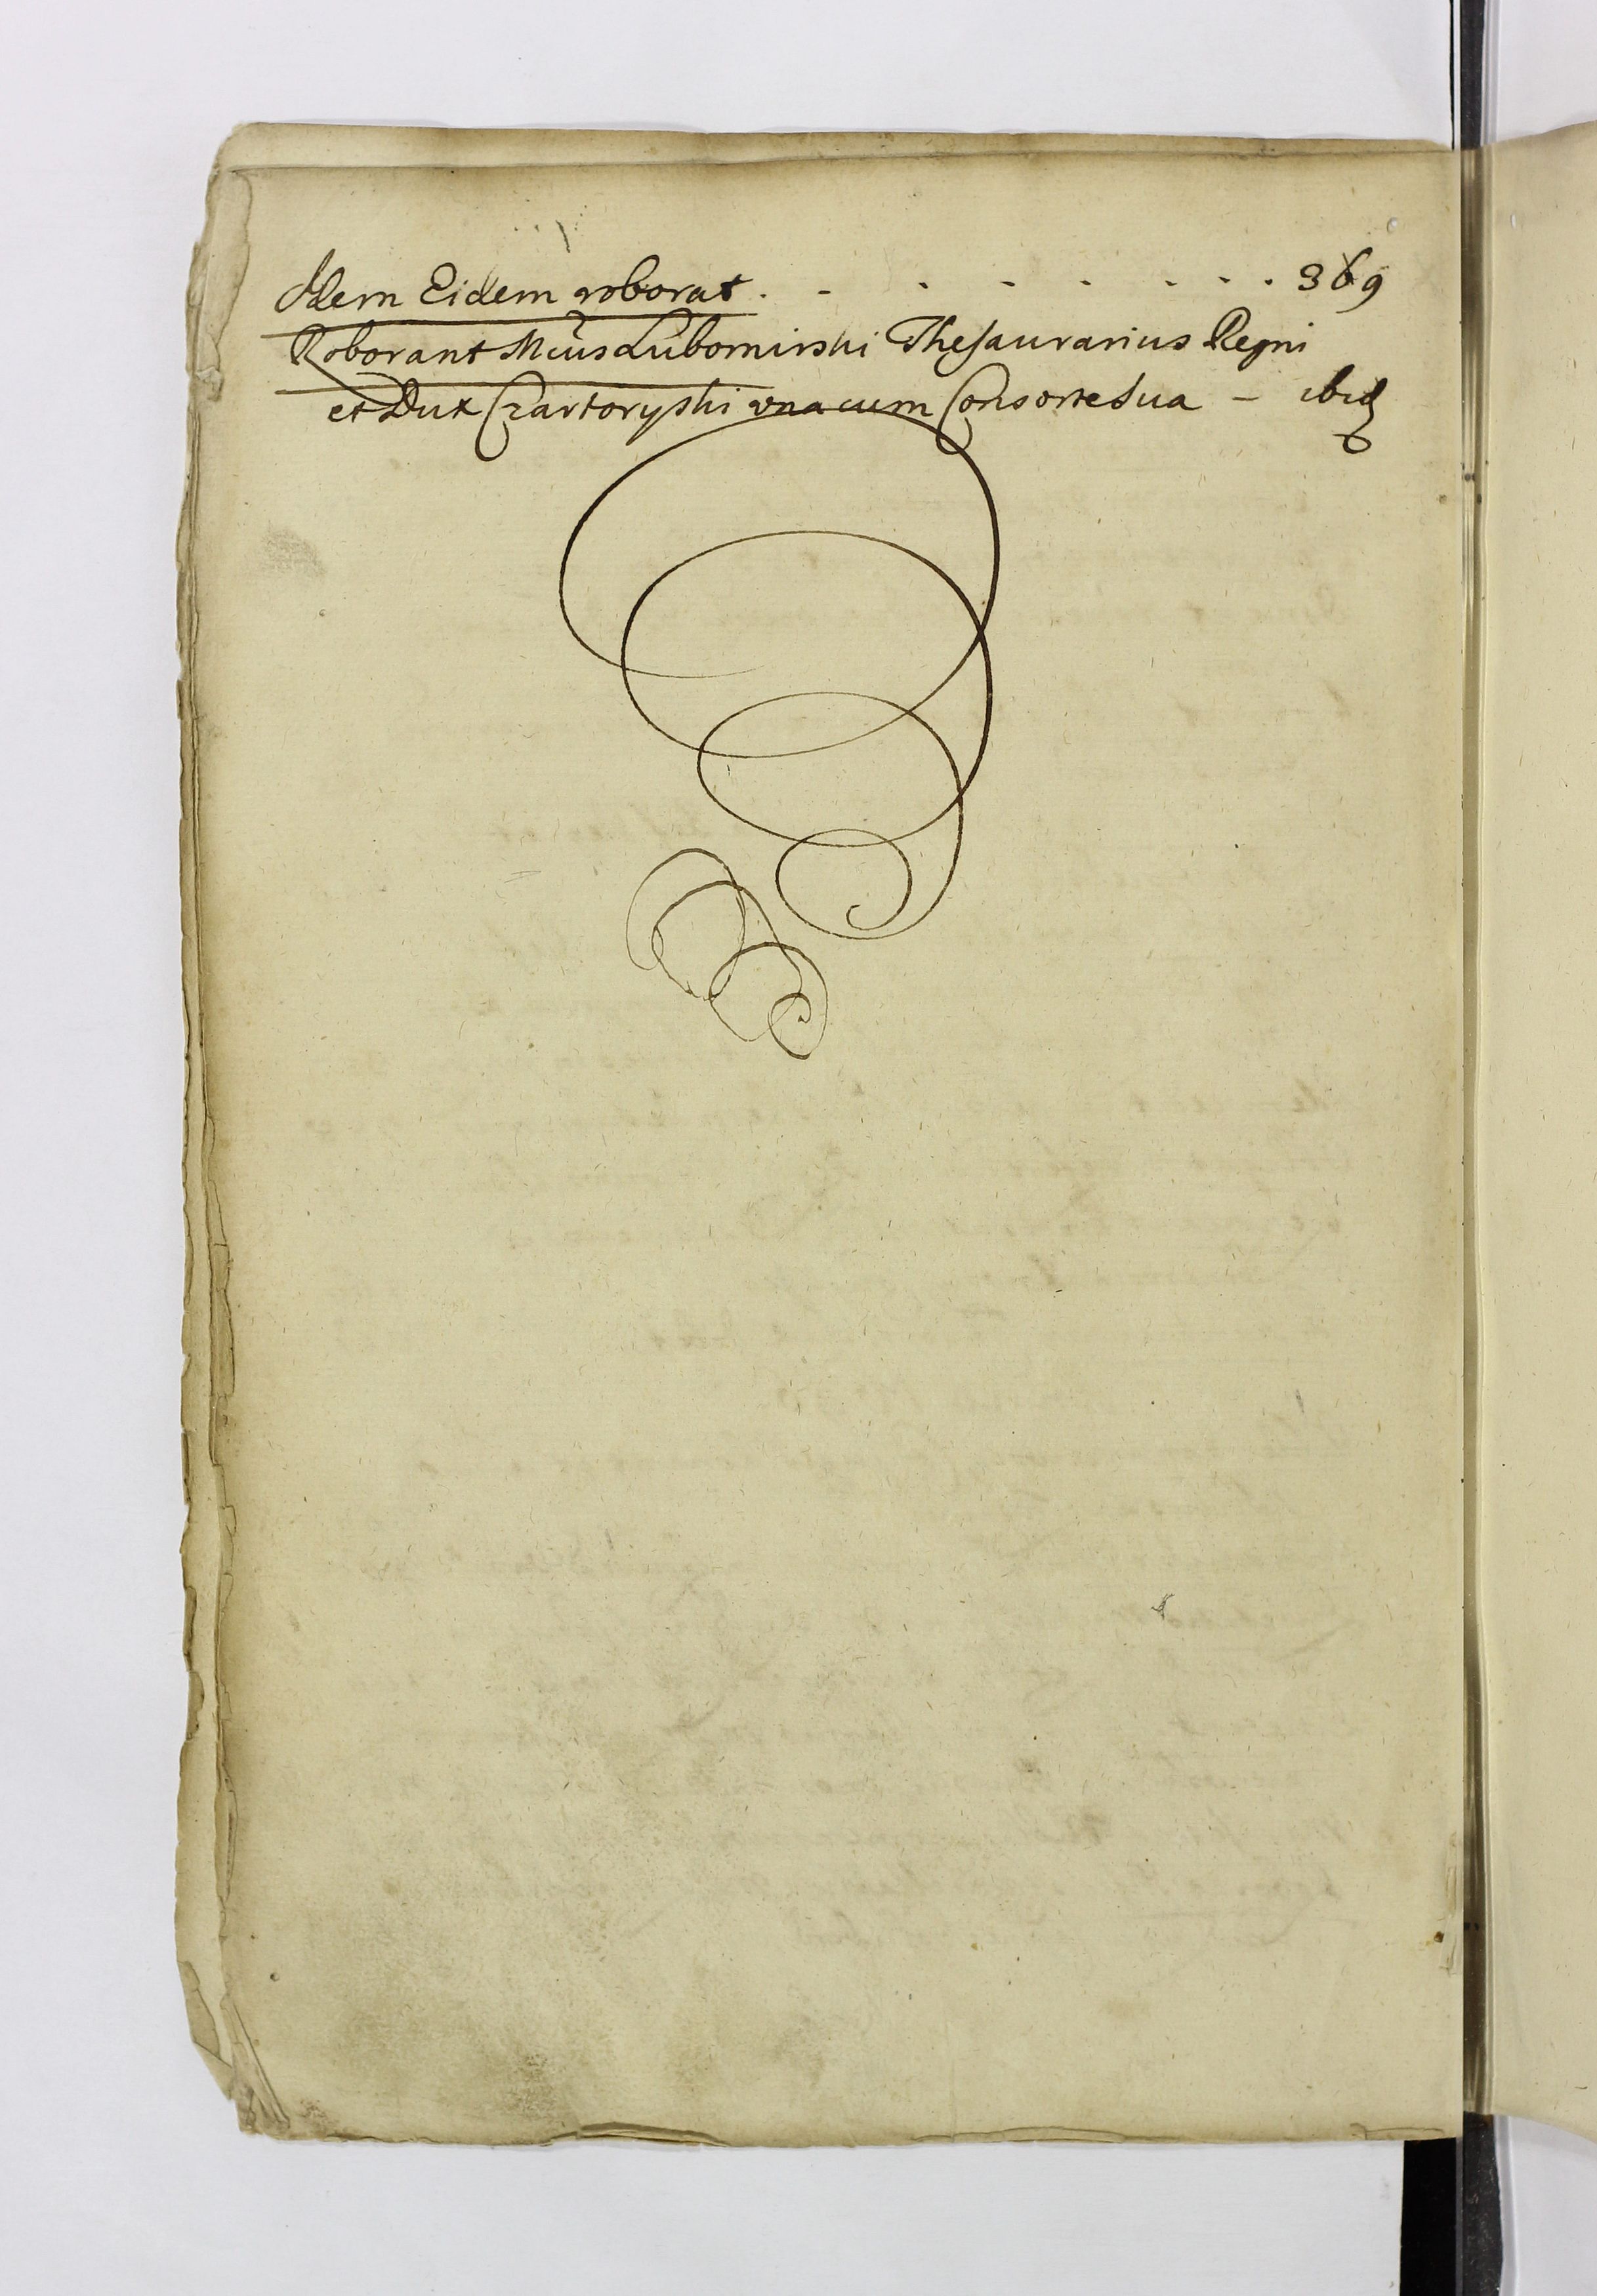 Idem Eidem roborat . - . - . - . . . 369
Roborant Mcus Lubomirski Thesaurarius Regni
et Dux Czartoryski una cum Consorte sua - ibid